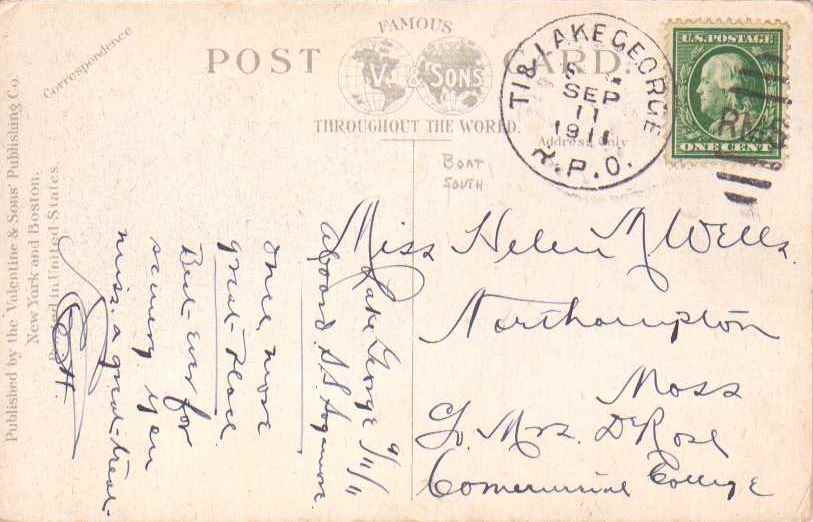 FAMOUS
POST CARD.
V. & SONS
THROUGHOUT THE WORLD.
Correspondence
Address Only
Published by the Valentine & Sons' Publishing Co.
New York and Boston.
Printed in United States.
TI & LAKE GEORGE
SEP
11
1911
R.P.O.
U.S. POSTAGE
ONE CENT
RMS
BOAT
SOUTH
Lake George 9/11/11
aboard S.S. Sagamore.
Once more
great place
Best ever for
scenery you
miss a great treat.
H.
Miss Helen M Wells.
Northampton
Mass
Mrs. De Rose
Commercial College